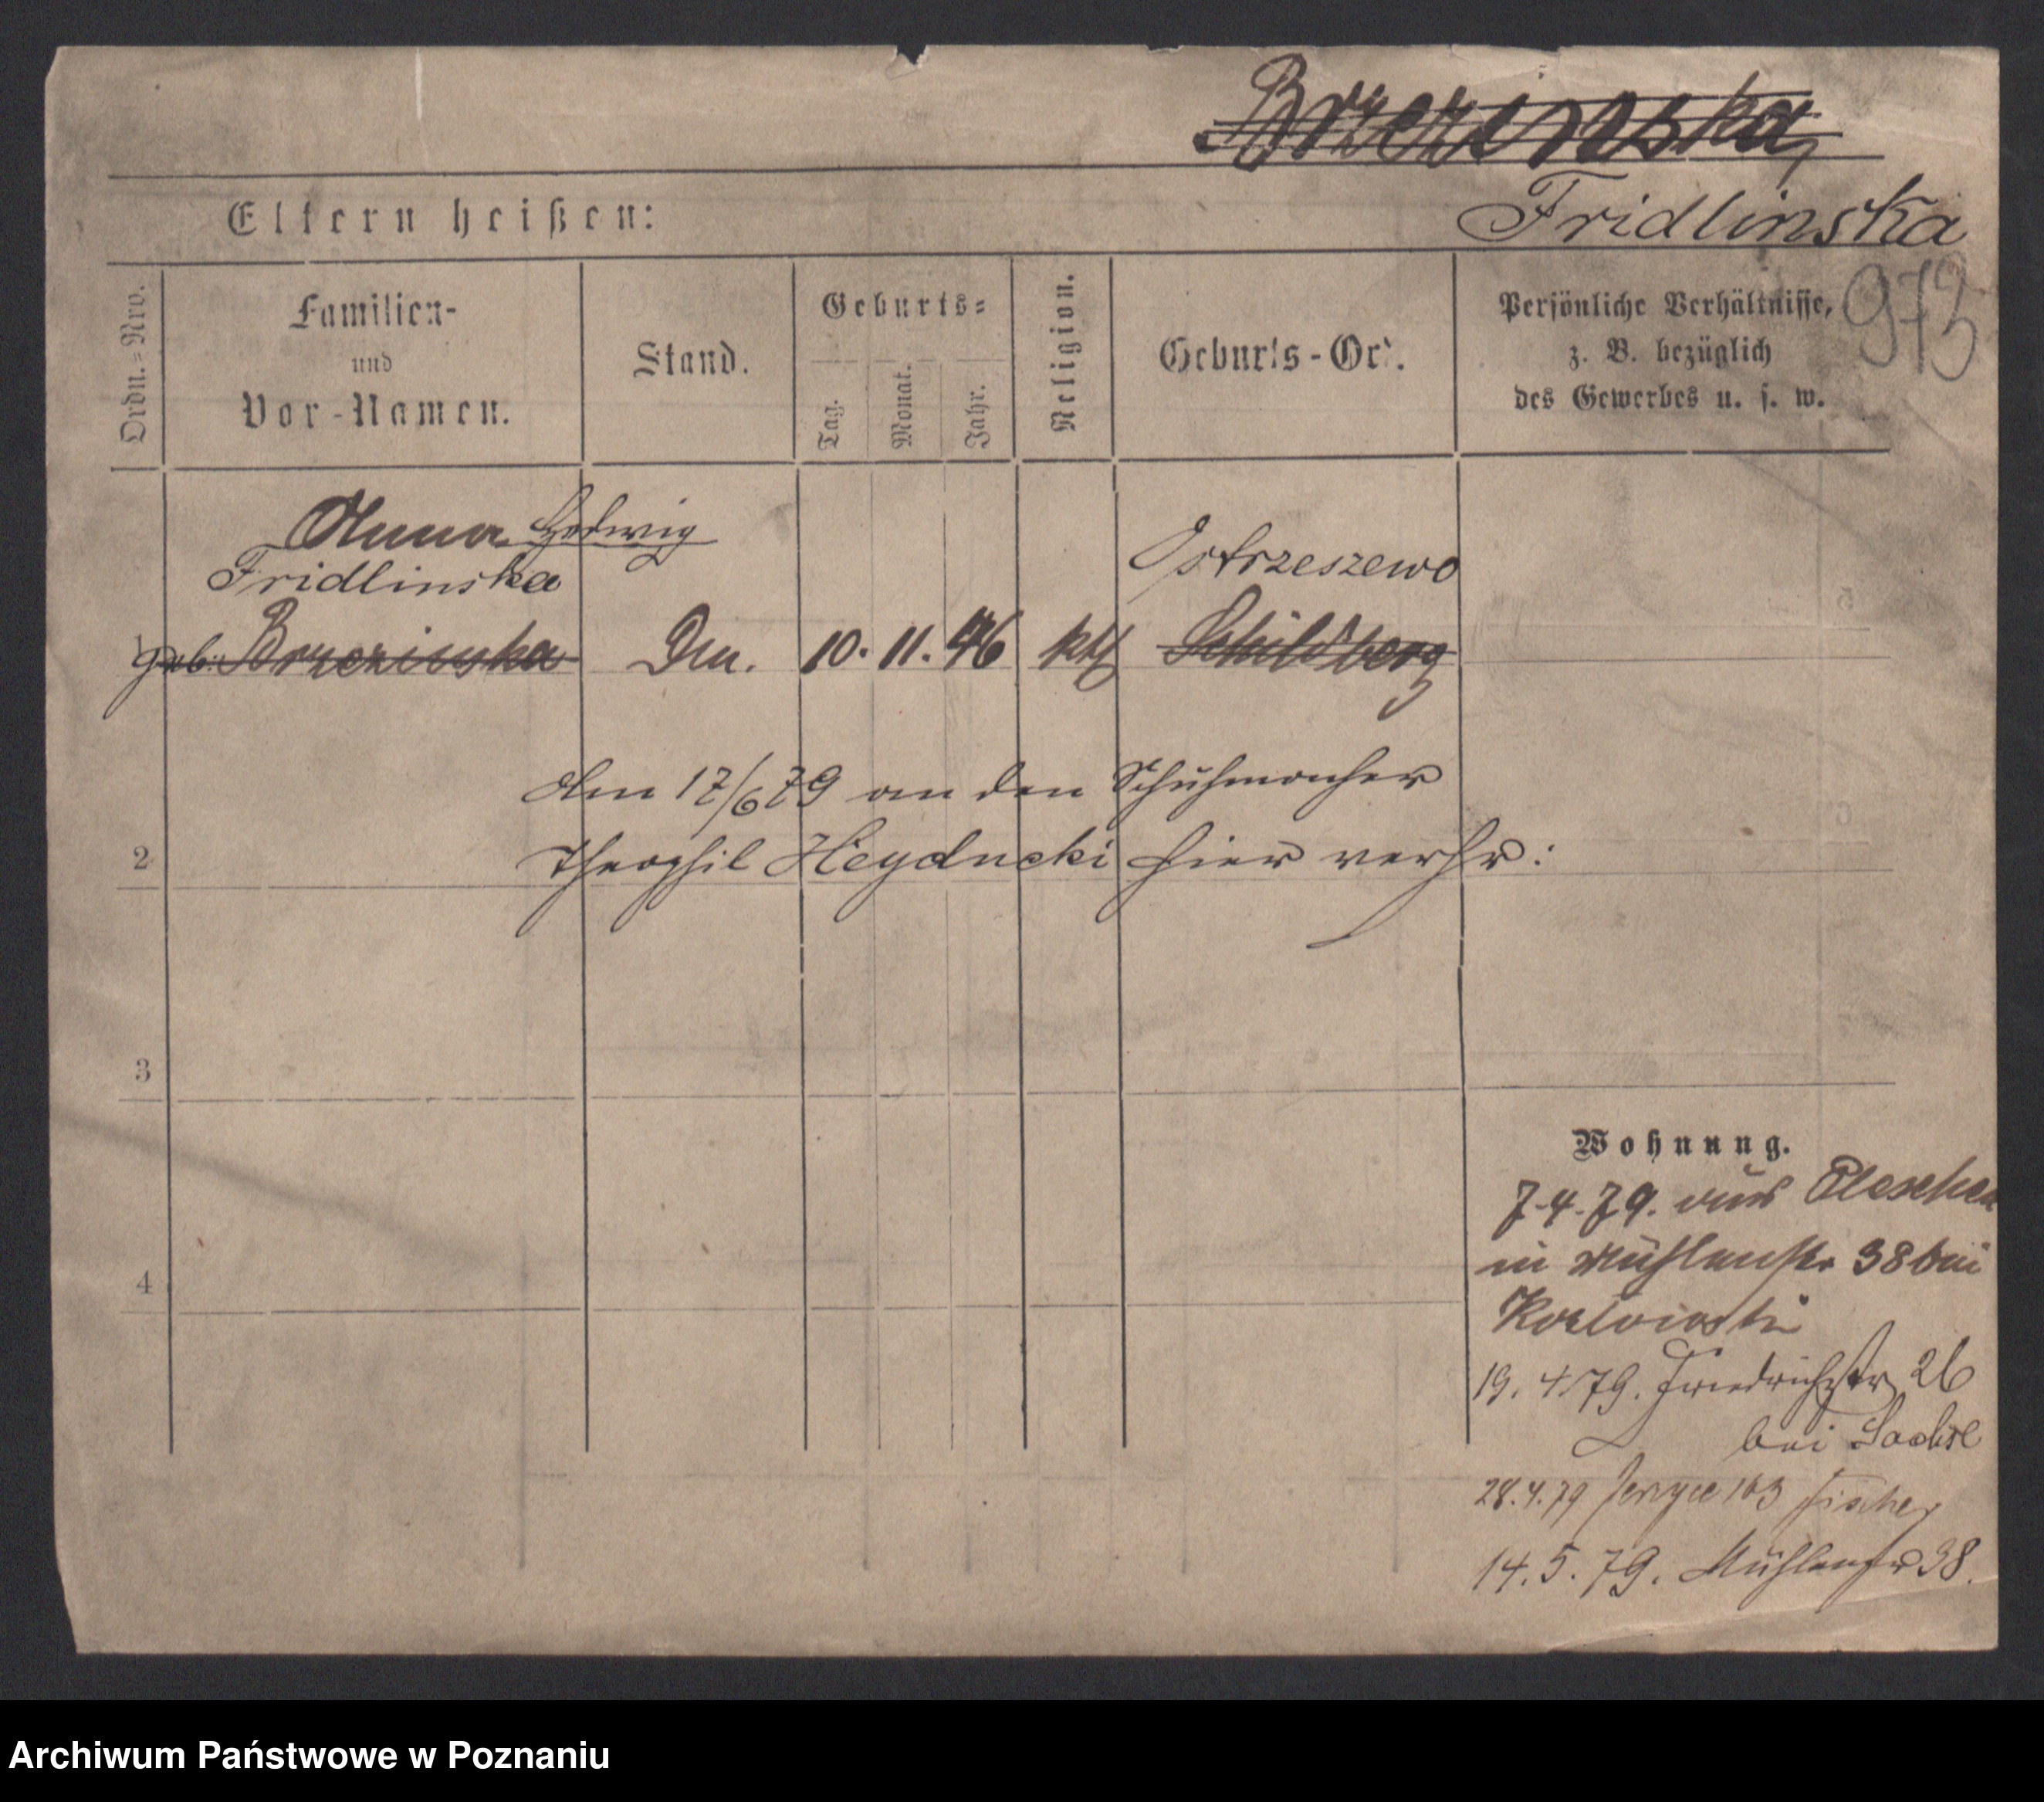 Brzezinska
Eltern heißen:
Fridlinska
973
Ordn.=Nro.
Familien-
und
Vor-Namen.
Stand.
Geburts=
Tag.
Monat.
Jahr.
Religion.
Geburts-Ort.
Persönliche Verhältnisse,
z. B. bezüglich
des Gewerbes u. s. w.
Anna Hedwig
Fridlinska
Ostrzeszewo
1
geb: Brzezinska
10. 11. 46
kth
Schildberg
Am 17/6 79 an den Schuhmacher
2
Theophil Heyducki hier verhr:
3
4
Wohnung.
7.4.79. aus Pleschen
in Mühlenstr 38 bei
19. 4 79. Friedrichstr 26
bei Sachse
28.4.79 Jerzyce 103 Fischer
14. 5. 79. Mühlenstr 38.
Archiwum Państwowe w Poznaniu